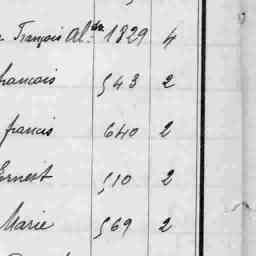 François Al. 1829 4
françois 543 2
francis 640 2
Ernest 510 2
Marie 569 2